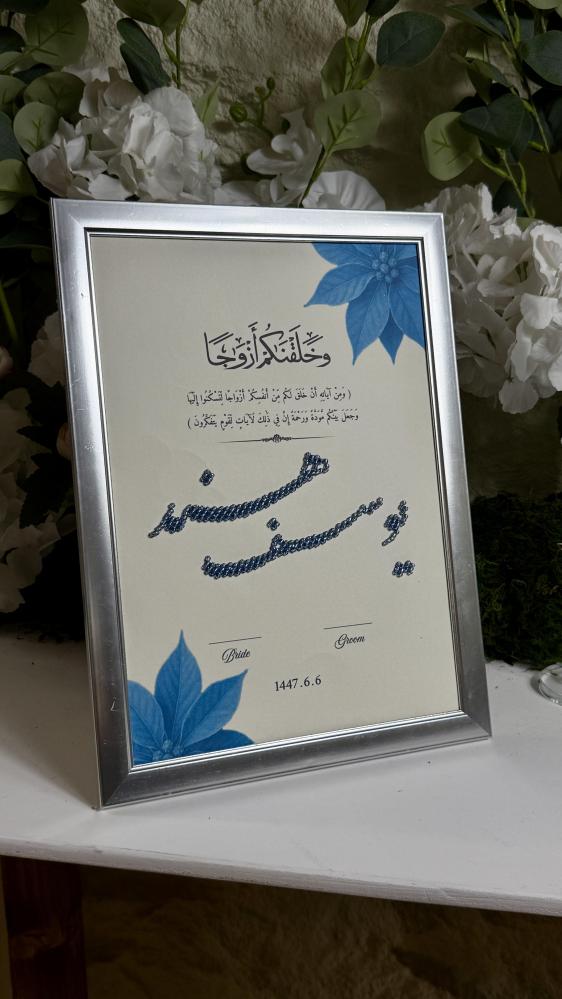 وَخَلَقْنَاكُمْ أَزْوَاجًا
( وَمِنْ آيَاتِهِ أَنْ خَلَقَ لَكُمْ مِنْ أَنْفُسِكُمْ أَزْوَاجًا لِتَسْكُنُوا إِلَيْهَا
وَجَعَلَ بَيْنَكُمْ مَوَدَّةً وَرَحْمَةً إِنَّ فِي ذَلِكَ لَآيَاتٍ لِقَوْمٍ يَتَفَكَّرُونَ )
هند
يوسف
Bride
Groom
1447.6.6